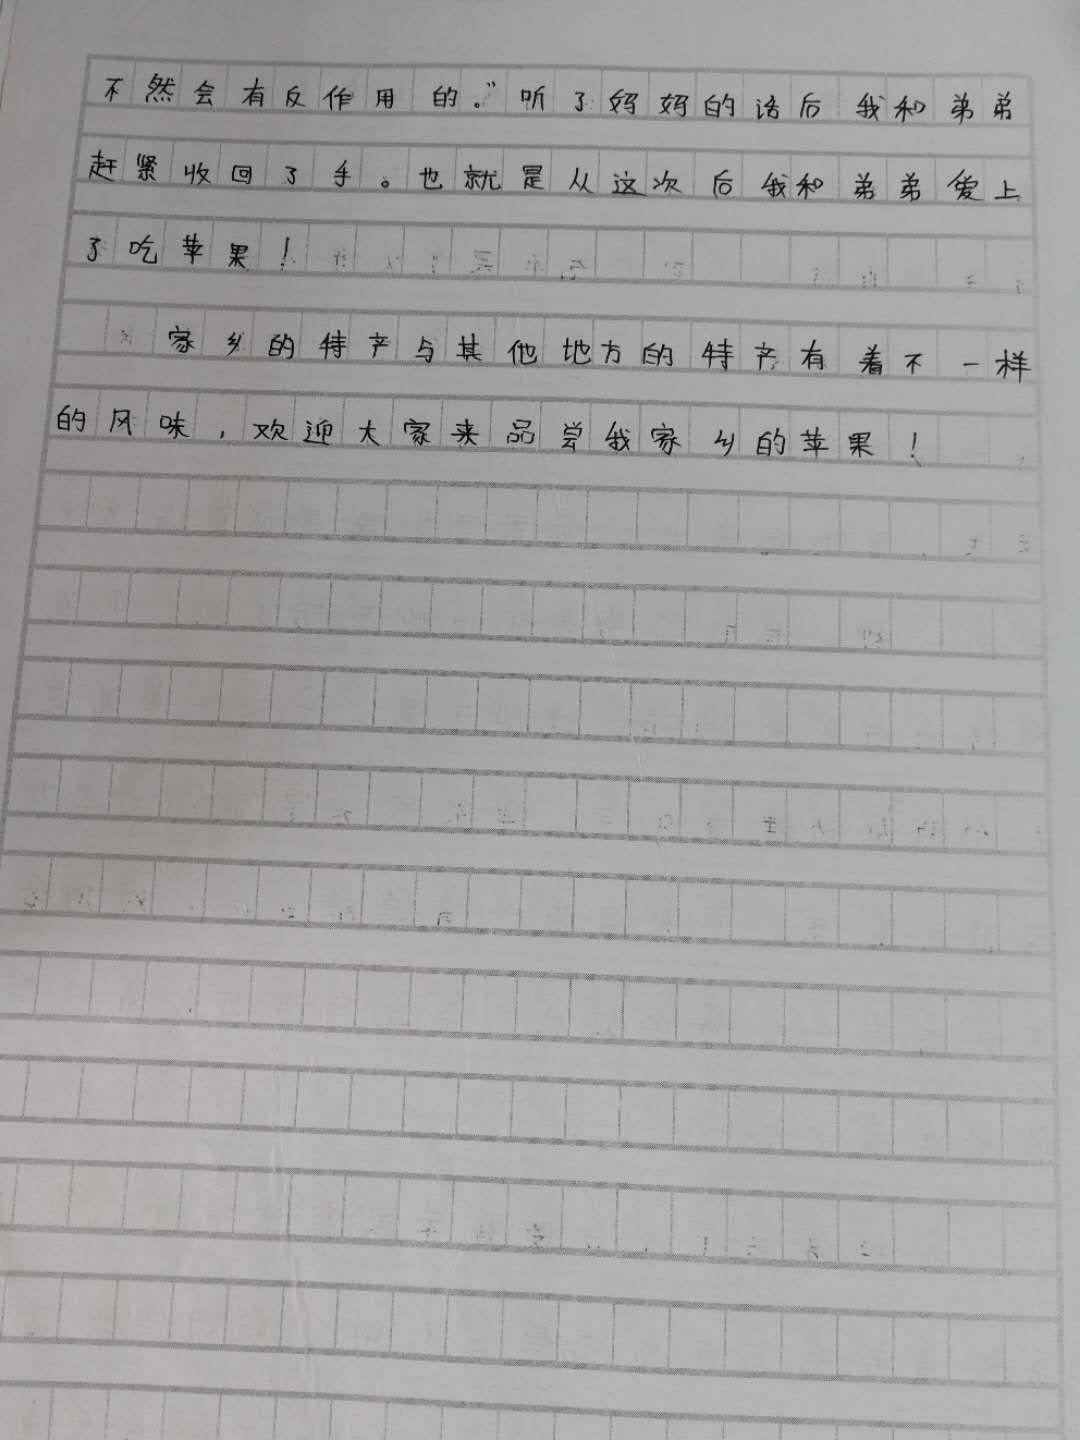 不然会有反作用的。”听了妈妈的话后我和弟弟
赶紧收回了手。也就是从这次后我和弟弟爱上
了吃苹果！
家乡的特产与其他地方的特产有着不一样
的风味，欢迎大家来品尝我家乡的苹果！